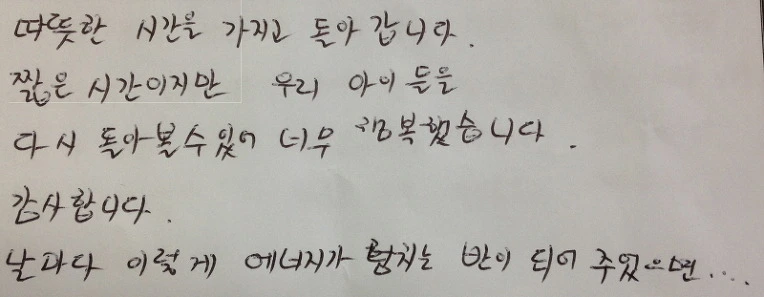 따뜻한 시간을 가지고 돌아 갑니다.
짧은 시간이지만 우리 아이 들을
다시 돌아볼수있어 너무 행복했습니다.
감사합니다.
날마다 이렇게 에너지가 넘치는 반이 되어 주었으면....